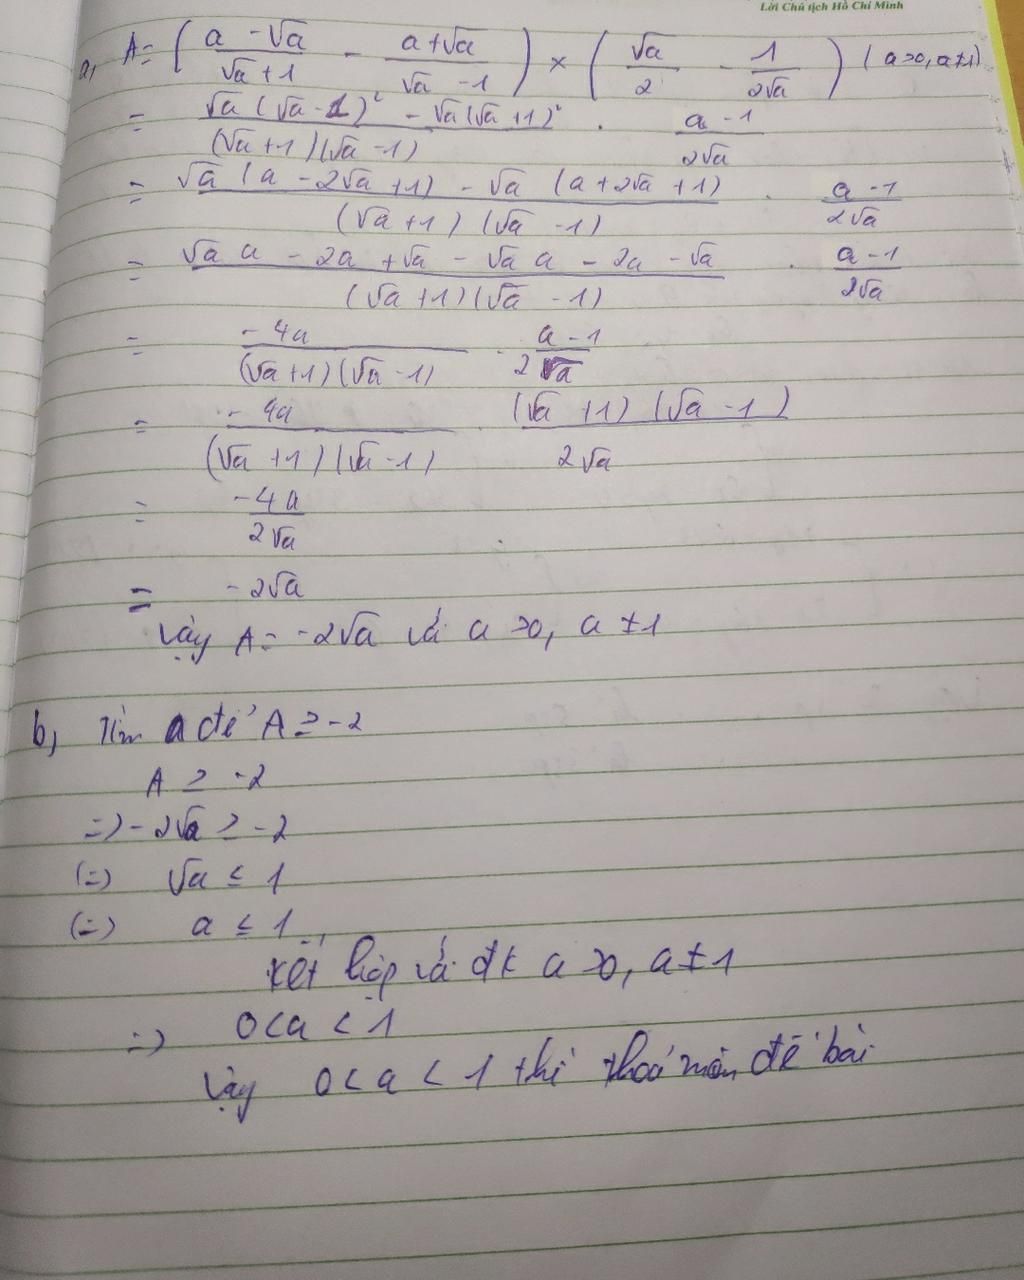 Lời Chủ tịch Hồ Chí Minh
a, A = ( (a - √a)/(√a + 1) - (a + √a)/(√a - 1) ) × ( √a/2 - 1/(2√a) ) (a > 0, a ≠ 1)
= (√a (√a - 1)² - √a (√a + 1)²)/((√a + 1)(√a - 1)) . (a - 1)/(2√a)
= (√a (a - 2√a + 1) - √a (a + 2√a + 1))/((√a + 1)(√a - 1)) . (a - 1)/(2√a)
= (√a a - 2a + √a - √a a - 2a - √a)/((√a + 1)(√a - 1)) . (a - 1)/(2√a)
= (-4a)/((√a + 1)(√a - 1)) . (a - 1)/(2√a)
= (-4a)/((√a + 1)(√a - 1)) . ((√a + 1)(√a - 1))/(2√a)
= (-4a)/(2√a)
= -2√a
Vậy A = -2√a với a > 0, a ≠ 1
b, Tìm a để A ≥ -2
A ≥ -2
=> -2√a ≥ -2
(=) √a ≤ 1
(=) a ≤ 1
Kết hợp với đk a > 0, a ≠ 1
=> 0 < a < 1
Vậy 0 < a < 1 thì thoả mãn đề bài